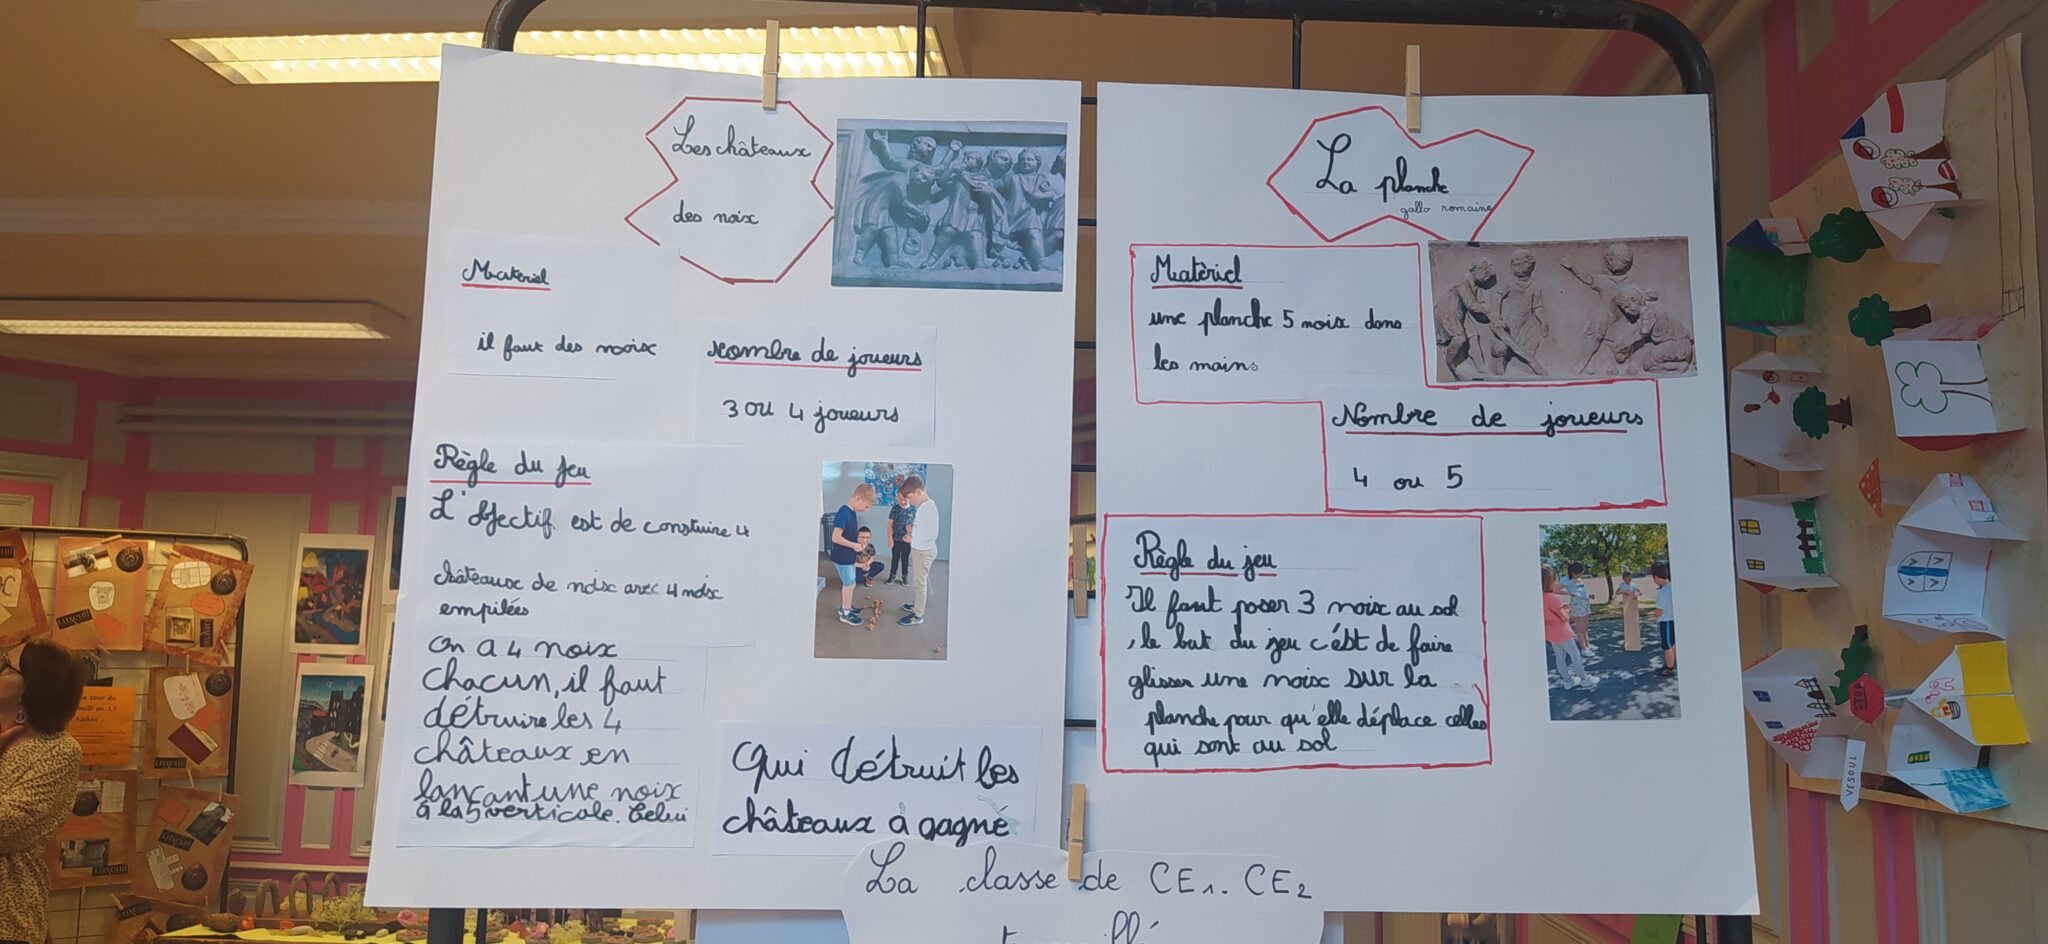 Les châteaux
des noix
Matériel
il faut des nooix
Nombre de joueurs
3 ou 4 joueurs
Règle du jeu
L'objectif est de construire 4
châteaux de noix avec 4 noix
empilées
On a 4 noix
chacun, il faut
détruire les 4
châteaux en
lançant une noix
à la verticale. Celui
Qui détruit les
châteaux à gagné
La planche
gallo-romaine
Matèriel
une planche 5 noix dans
les mains
Nombre de joueurs
4 ou 5
Règle du jeu
Il faut poser 3 noix au sol
, le but du jeu c'ést de faire
glisser une noix sur la
planche pour qu'elle déplace celles
qui sont au sol
La classe de CE1. CE2
STOP
VESOUL